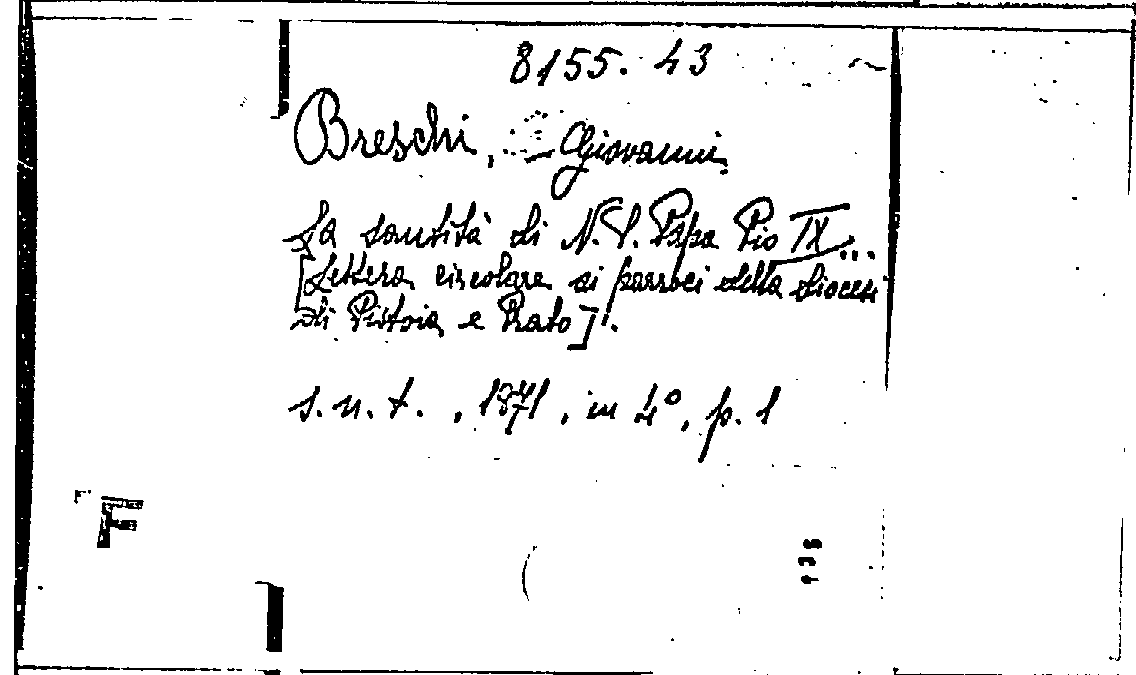 8155.43
Breschi, Giovanni.
La santità di N.S. Papa Pio IX...
[Lettera circolare ai parroci della diocesi
di Pistoia e Prato].
s.n.t., 1871, in 4º, p. 1
F